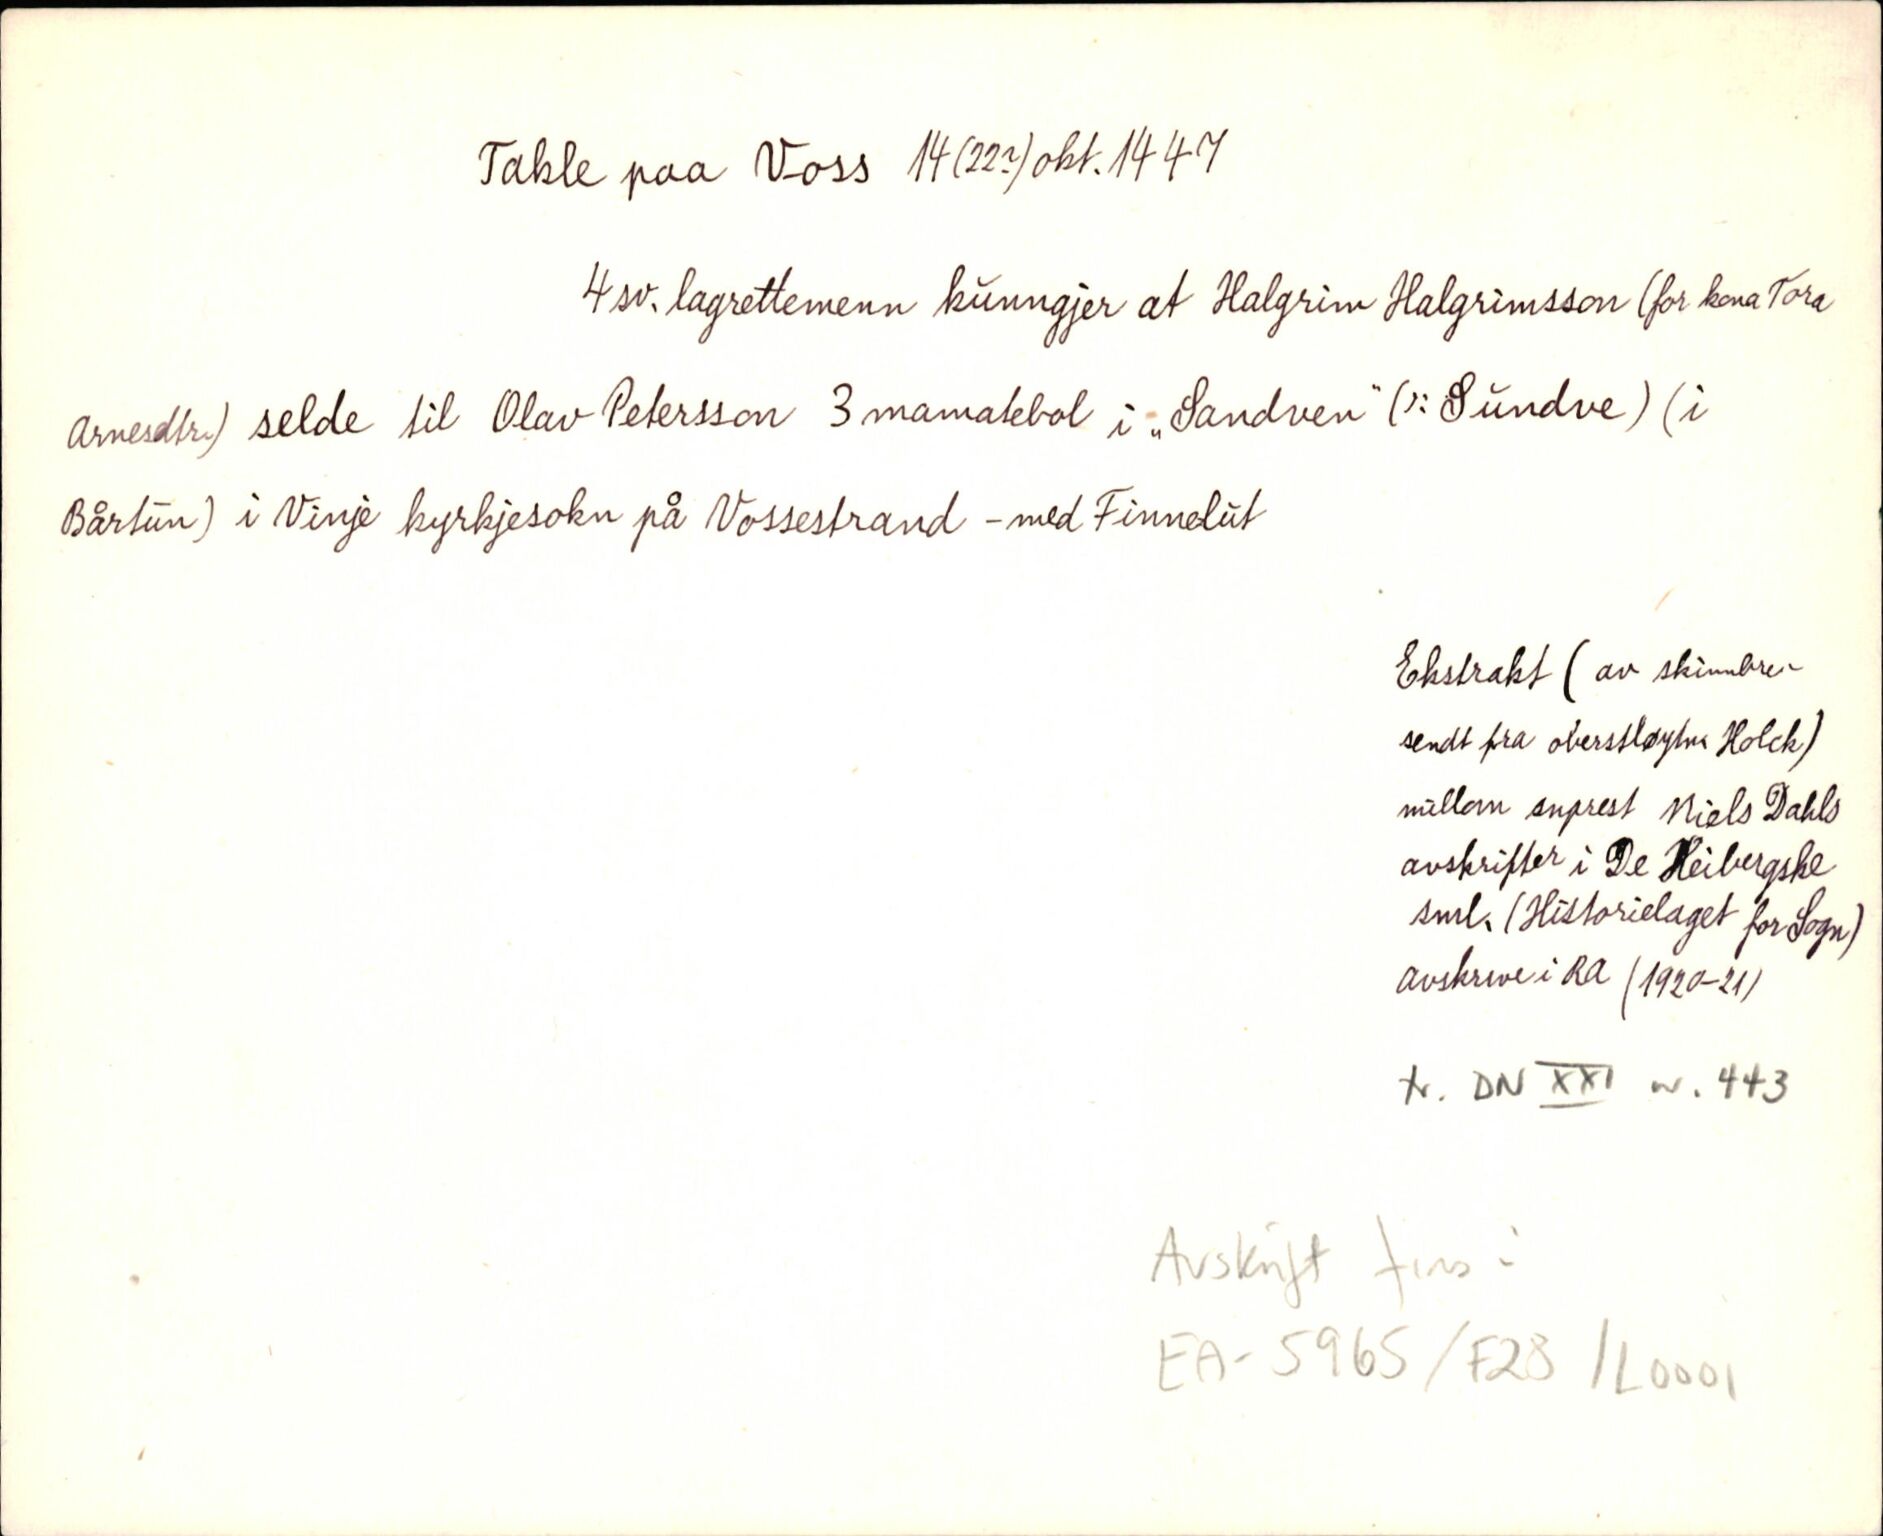 Takle paa Voss 14 (22?) okt. 1447
4 sv. lagrettemenn kunngjer at Halgrim Halgrimsson (for kona Tora
Arnesdtr.) selde til Olav Petersson 3 mamatebol i „Sandven" (ɔ: Sundve) (i
Bårtun) i Vinje kyrkjesokn på Vossestrand - med Finnelut
Ekstrakt (av skinnbrev
sendt fra oberstløytn. Holck)
millom snprest Niels Dahls
avskrifter i De Heibergske
sml. (Historielaget for Sogn)
avskrive i RA (1920-21)
tr. DN XXI nr. 443
Avskrift fins i
EA- 5965/F28/L0001